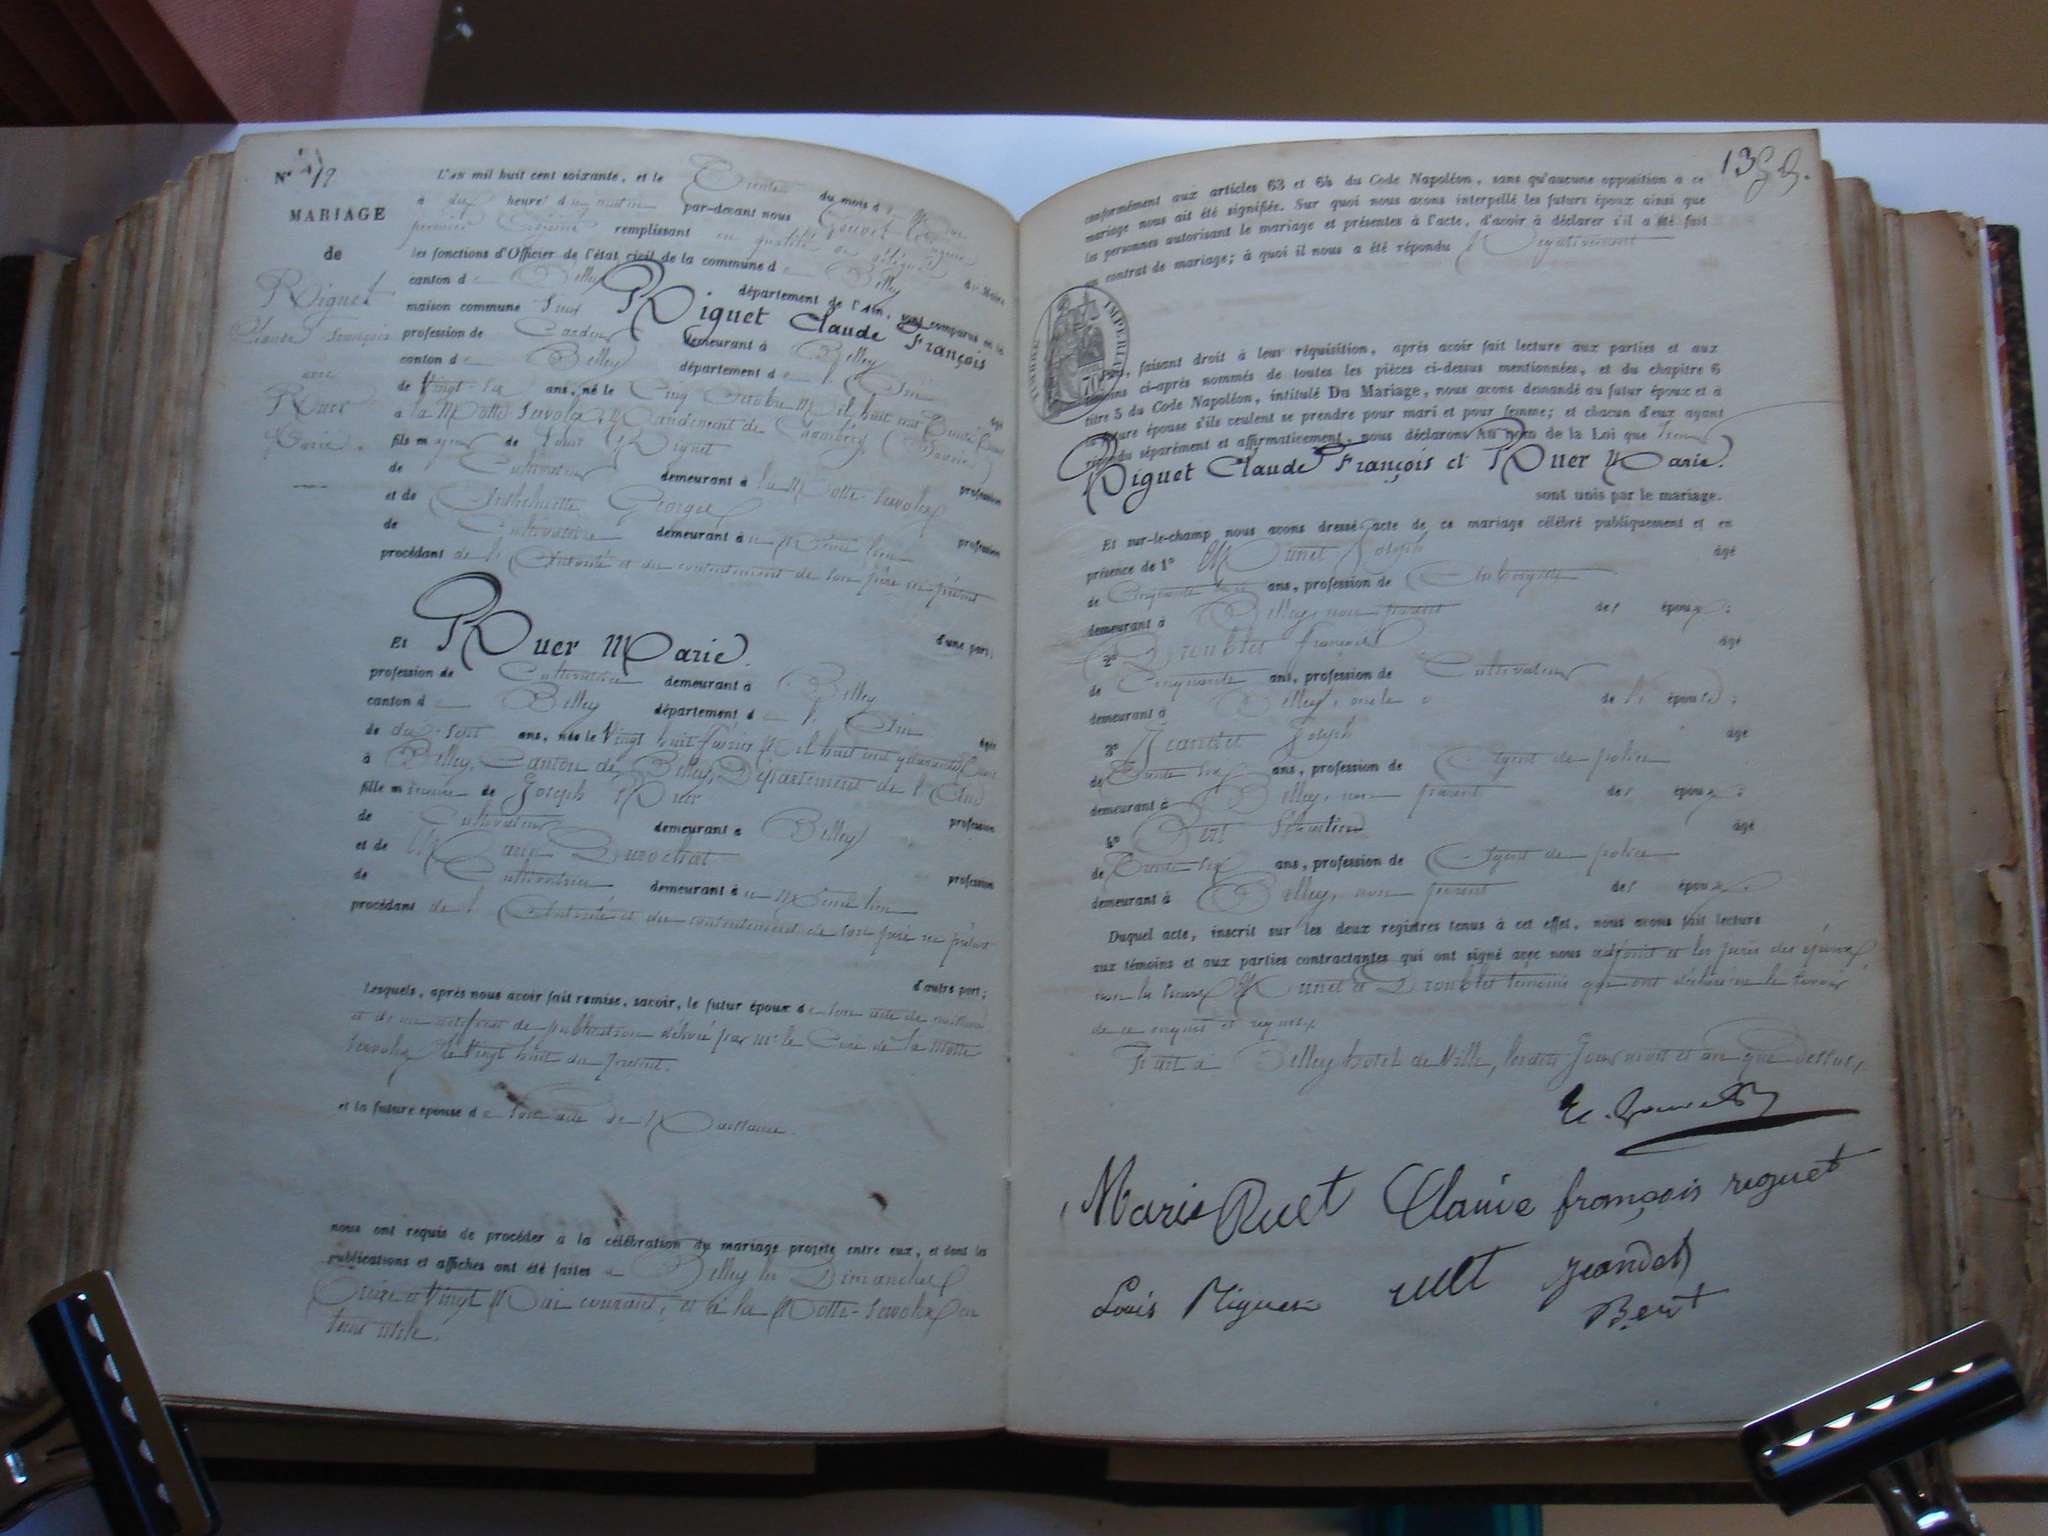 N° 19
MARIAGE
de
Riguet
Claude François
avec
Ruet
Marie.
L'an mil huit cent soixante, et le Trente du mois de Mai
à dix heures du matin par-devant nous Gouvet
premier Adjoint remplissant en qualité de délégué
les fonctions d'Officier de l'état civil de la commune de Belley
canton de Belley département de l'Ain, sont comparus en la
maison commune Sieur Riguet Claude François
profession de Cardeur demeurant à Belley
canton de Belley département de l'Ain âgé
de Vingt-six ans, né le Cinq Octobre Mil huit cent Trente
à la Motte Servolex Mandement de Chambéry (Savoie)
fils majeur de Louis Riguet profession
de Cultivateur demeurant à la Motte-Servolex
et de Anthelmette Georges profession
de Cultivatrice demeurant à au Même lieu
procédant de l'Autorité et du contentement de son père ici présent
d'une part;
Et Ruet Marie.
profession de Cultivatrice demeurant à Belley
canton de Belley département de l'Ain âgée
de dix-sept ans, née le Vingt huit février Mil huit cent quarante trois
à Belley, Canton de Belley, Département de l'Ain
fille mineure de Joseph Ruet profession
de Cultivateur demeurant à Belley
et de Marie Durochat profession
de Cultivatrice demeurant à au Même lieu
procédant de l'Autorité et du contentement de son père ici présent
d'autre part;
Lesquels, après nous avoir fait remise, savoir, le futur époux de son acte de naissance
et d'un certificat de publication délivré par Mr le Curé de la Motte
Servolex le Vingt huit du présent.
et la future épouse de son acte de Naissance.
nous ont requis de procéder à la célébration du mariage projeté entre eux, et dont les
publications et affiches ont été faites à Belley les Dimanches
Treize et Vingt Mai courant, et à la Motte-Servolex en
tems utile.
conformément aux articles 63 et 64 du Code Napoléon, sans qu'aucune opposition à ce
mariage nous ait été signifiée. Sur quoi nous avons interpellé les futurs époux ainsi que
les personnes autorisant le mariage et présentes à l'acte, d'avoir à déclarer s'il a été fait
un contrat de mariage; à quoi il nous a été répondu Négativement
TIMBRE IMPERIAL
faisant droit à leur réquisition, après avoir fait lecture aux parties et aux
témoins ci-après nommés de toutes les pièces ci-dessus mentionnées, et du chapitre 6
titre 5 du Code Napoléon, intitulé Du Mariage, nous avons demandé au futur époux et à
la future épouse s'ils veulent se prendre pour mari et pour femme; et chacun d'eux ayant
répondu séparément et affirmativement, nous déclarons Au nom de la Loi que Sieur
Riguet Claude François et Ruet Marie.
sont unis par le mariage.
Et sur-le-champ nous avons dressé acte de ce mariage célébré publiquement et en
présence de 1° Munet Joseph âgé
de Cinquante trois ans, profession de Aubergiste
demeurant à Belley, non parent des époux;
2° Droublet François âgé
de Cinquante ans, profession de Cultivateur
demeurant à Belley, oncle de l'épouse;
3° Jeandet Joseph âgé
de Trente six ans, profession de Agent de police
demeurant à Belley, non parent des époux;
4° Bert Sébastien âgé
de Trente six ans, profession de Agent de police
demeurant à Belley, non parent des époux.
Duquel acte, inscrit sur les deux registres tenus à cet effet, nous avons fait lecture
aux témoins et aux parties contractantes qui ont signé avec nous adjoint et les pères des époux
non les Sieurs Munet et Droublet témoins qui ont déclaré ne le savoir
de ce enquis et requis.
Fait à Belley hotel de Ville, lesdits Jour mois et an que dessus.
Marie Ruet Claude françois riguet
Louis Riguet ruet jeandet
Bert